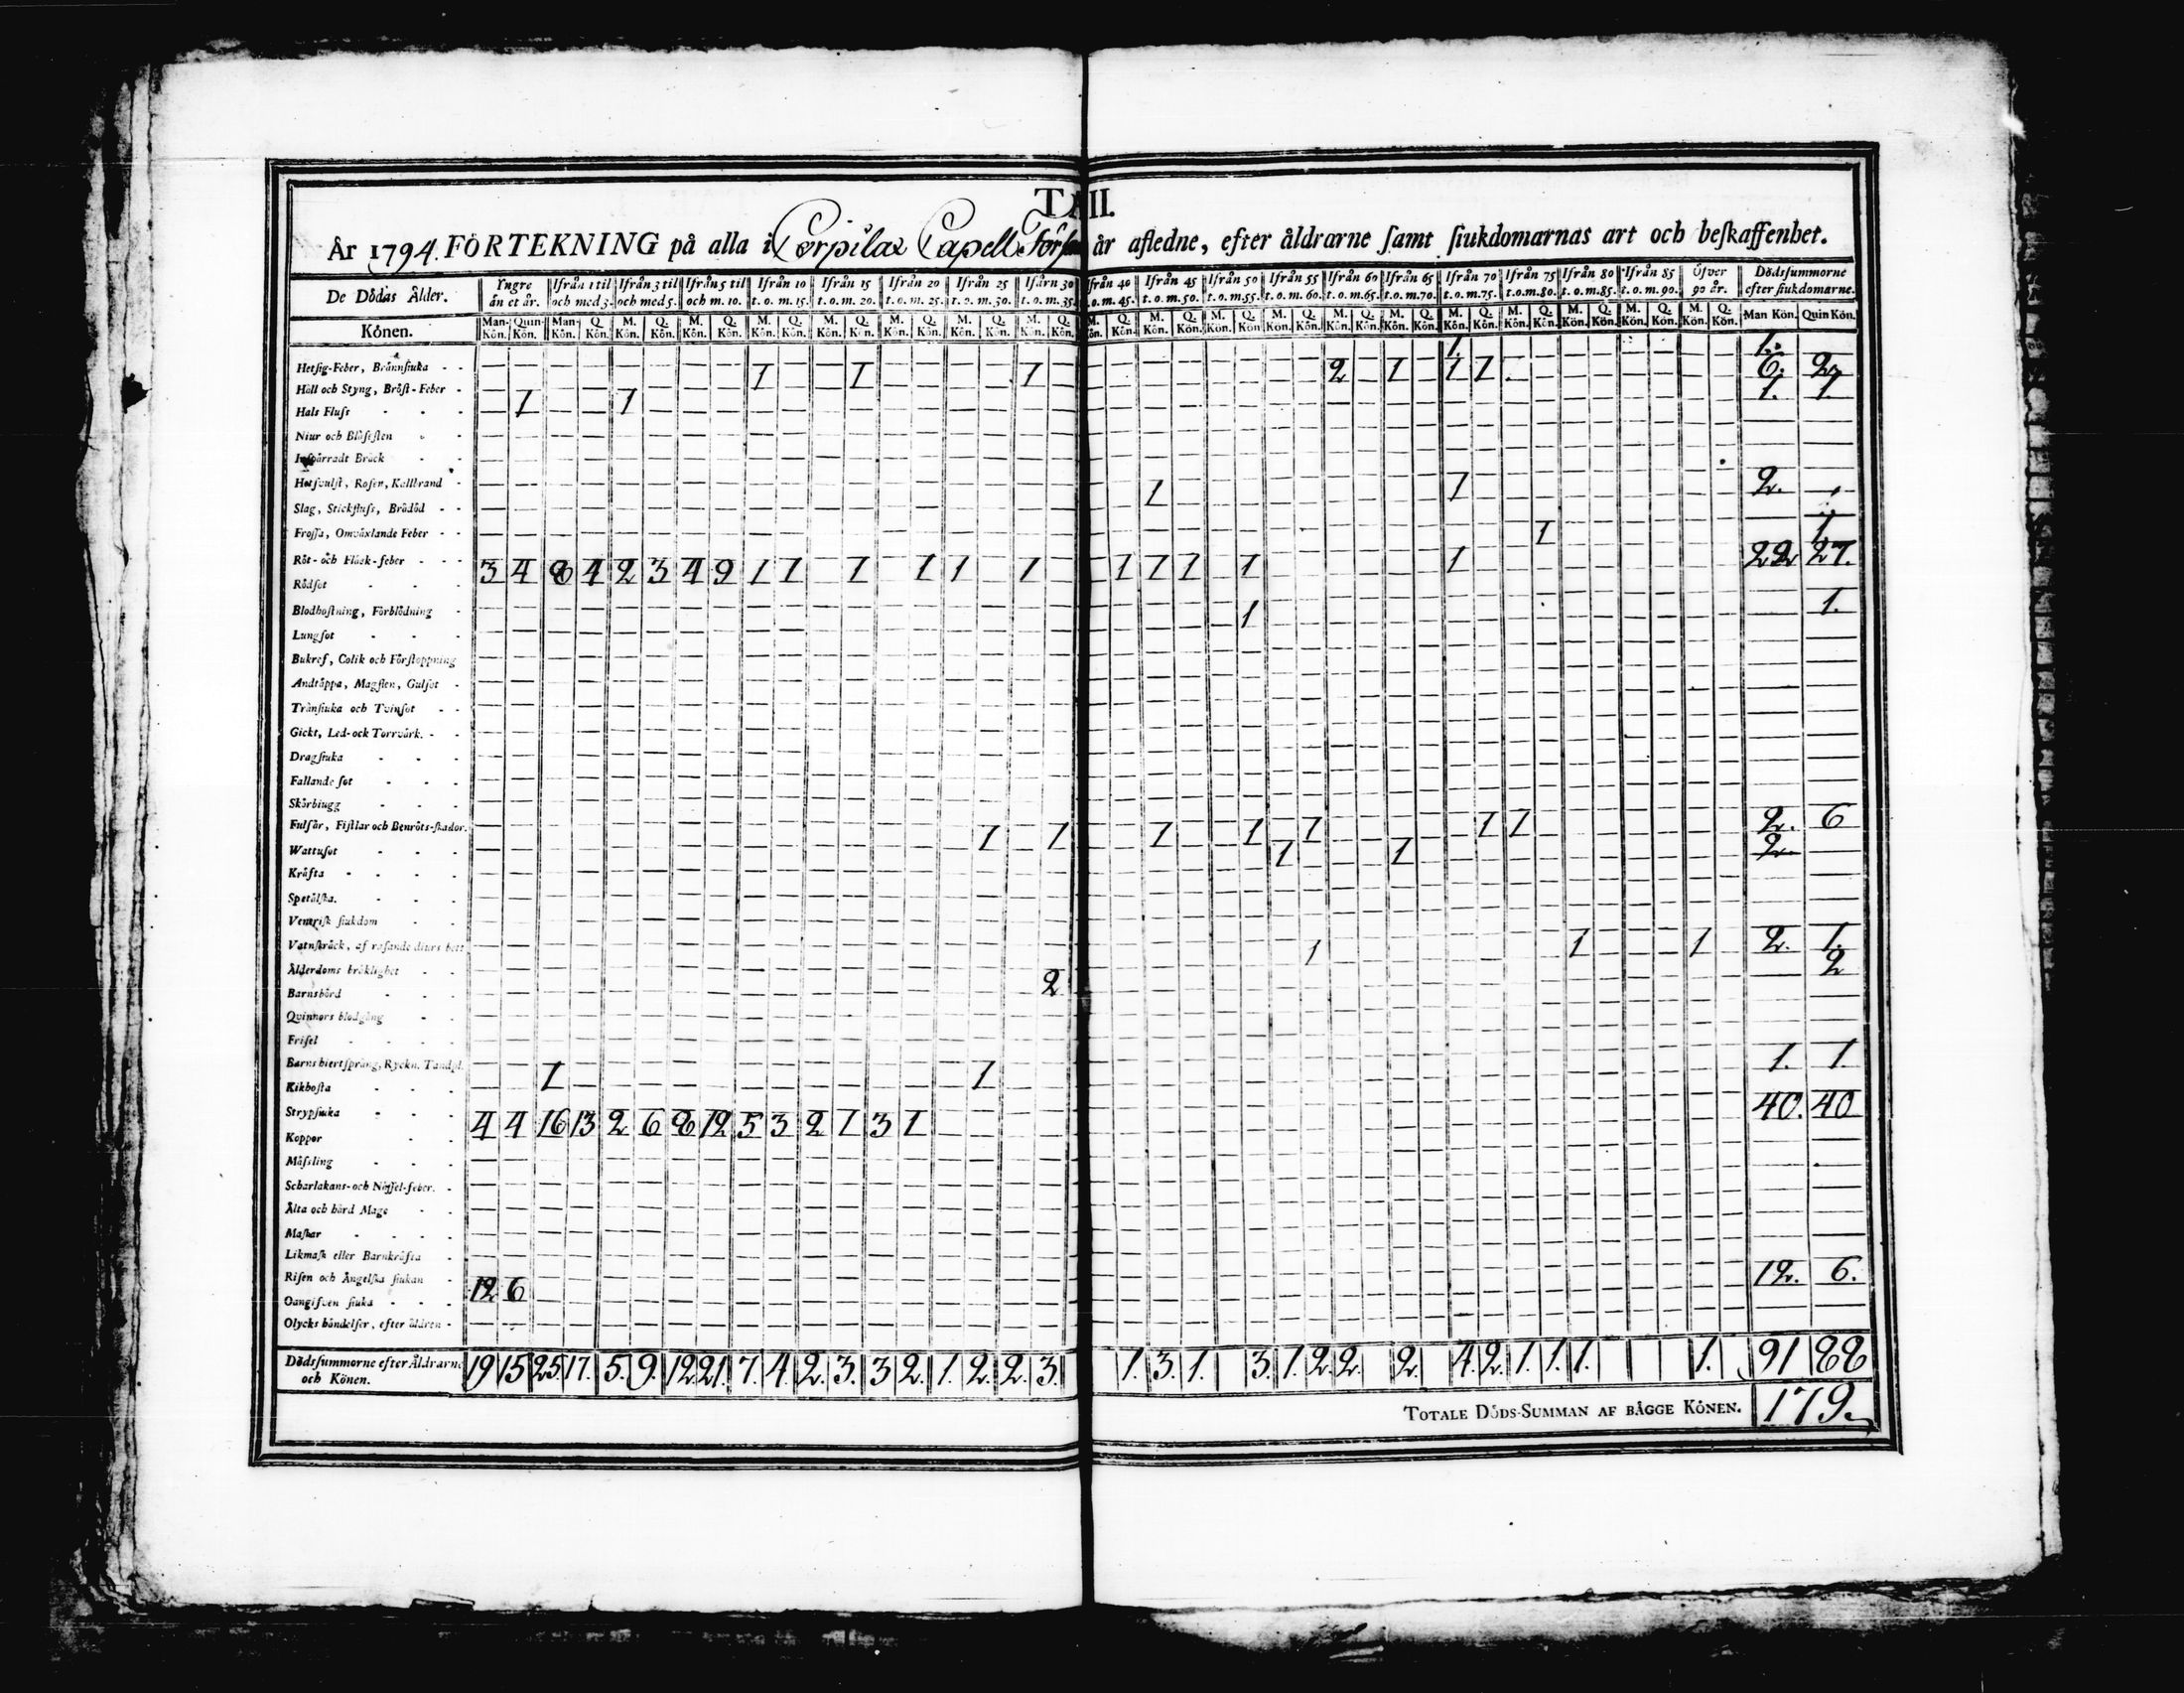 TA II.
År 1794. FÖRTEKNING på alla i Corpilax Capells Förſam år afledne, efter åldrarne ſamt ſiukdomarnas art och beſkaffenhet.
De Dödas Ålder. Yngre än et år. Ifrån 1 til och med 3. Ifrån 3 til och med 5. Ifrån 5 til och m. 10. Ifrån 10 t. o. m. 15. Ifrån 15 t. o. m. 20. Ifrån 20 t. o. m. 25. Ifrån 25 t. o. m. 30. Ifårn 30 t. o. m. 35. ifrån 40 t.o.m. 45. Ifrån 45 t. o. m. 50. Ifrån 50 t. o. m. 55. Ifrån 55 t. o. m. 60. Ifrån 60 t. o. m. 65. Ifrån 65 t. o. m. 70. Ifrån 70 t. o. m. 75. Ifrån 75 t.o.m. 80. Ifrån 80 t. o. m. 85. Ifrån 85 t. o. m. 90. Öfver 90 år. Dödsſummorne efter ſiukdomarne.
Könen. Man-Kön. Quin-Kön. Man-Kön. Q. Kön. M. Kön. Q. Kön. M. Kön. Q. Kön. M. Kön. Q. Kön. M. Kön. Q. Kön. M. Kön. Q. Kön. M. Kön. Q. Kön. M. Kön. Q. Kön. M. Kön. Q. Kön. M. Kön. Q. Kön. M. Kön. Q. Kön. M. Kön. Q. Kön. M. Kön. Q. Kön. M. Kön. Q. Kön. M. Kön. Q. Kön. M. Kön. Q. Kön. M. Kön. Q. Kön. M. Kön. Q. Kön. M. Kön. Q. Kön. Man Kön. Quin Kön.
Hetſig-Feber, Brännſiuka 1. 1.
Håll och Styng, Bröſt-Feber 1 1 1 2 1 1 1 6. 2
Hals Fluſs 1 1 1. 1.
Niur och Blåſeſten
Inſpärradt Bråck
Hetſvulſt, Roſen, Kallbrand
Slag, Stickfluſs, Brådöd 1 1 2.
Froſſa, Omväxlande Feber 1 1
Röt- och Fläck-feber
Rödſot 3 4 8 4 2 3 4 9 1 1 1 1 1 1 1 1 1 1 1 22 27.
Blodhoſtning, Förblödning 1 1.
Lungſot
Bukref, Colik och Förſtoppning
Andtäppa, Magſten, Gulſot
Tränſiuka och Tvinſot
Gickt, Led- ock Torrvärk.
Dragſiuka
Fallande ſot
Skörbiugg
Fulſår, Fiſtlar och Benröts-ſkador.
Wattuſot 1 1 1 1 1 1 1 2. 6
Kräfta 1 1 2.
Spetälſka.
Veneriſk ſiukdom
Vatnſkräck, af raſande diurs bett
Ålderdoms bräklighet 1 1 1 2. 1.
Barnsbörd 2 2
Qvinnors blodgång
Friſel
Barns hiertſprång, Ryckn. Tandſpl.
Kikhoſta 1 1 1. 1.
Strypſiuka
Koppor 4 4 16 13 2 6 8 12 5 3 2 1 3 1 40. 40
Mäſsling
Scharlakans- och Näſſel-feber.
Älta och hård Mage
Maſkar
Likmaſk eller Barnkräfta
Riſen och Ångelſka ſiukan
Oangifven ſiuka 12 6 12. 6.
Olycks händelſer, efter åldren
Dödsſummorne efter Åldrarne och Könen. 19 15 25. 17. 5. 9. 12 21. 7. 4. 2. 3. 3 2. 1. 2. 2. 3. 1. 3. 1. 3. 1. 2 2. 2. 4. 2. 1. 1. 1. 1. 91 88
TOTALE DÖDS-SUMMAN AF BÄGGE KÖNEN. 179.